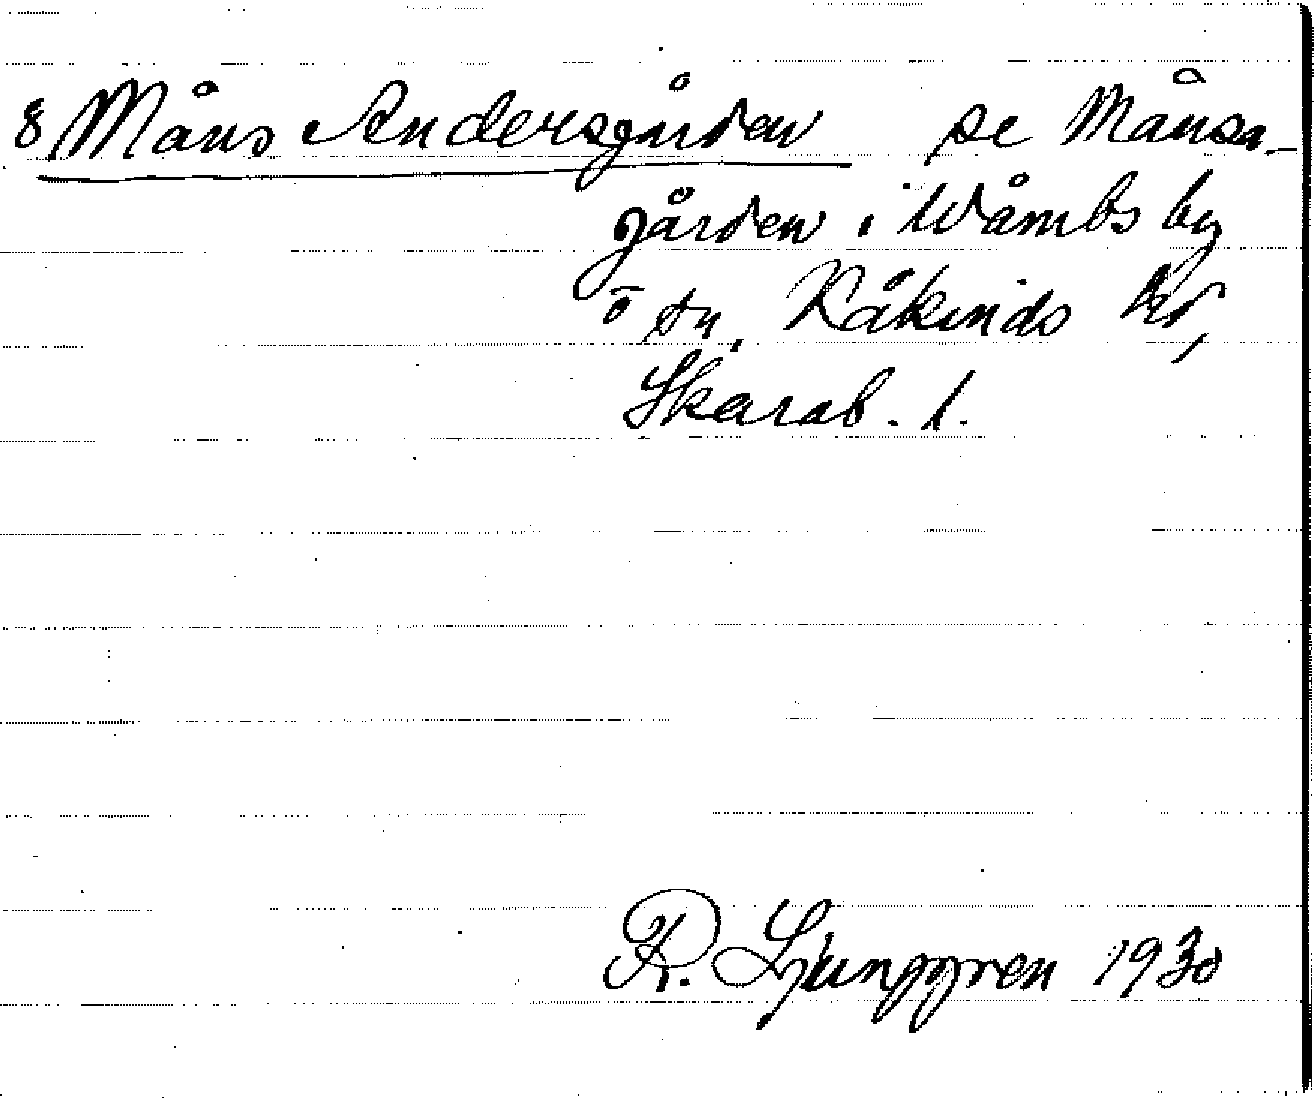 8 Måns Andersgården se Månsa-
gården i Wåmbs by
o sn, Kåkinds hd,
Skarab. l.
R. Ljunggren 1930